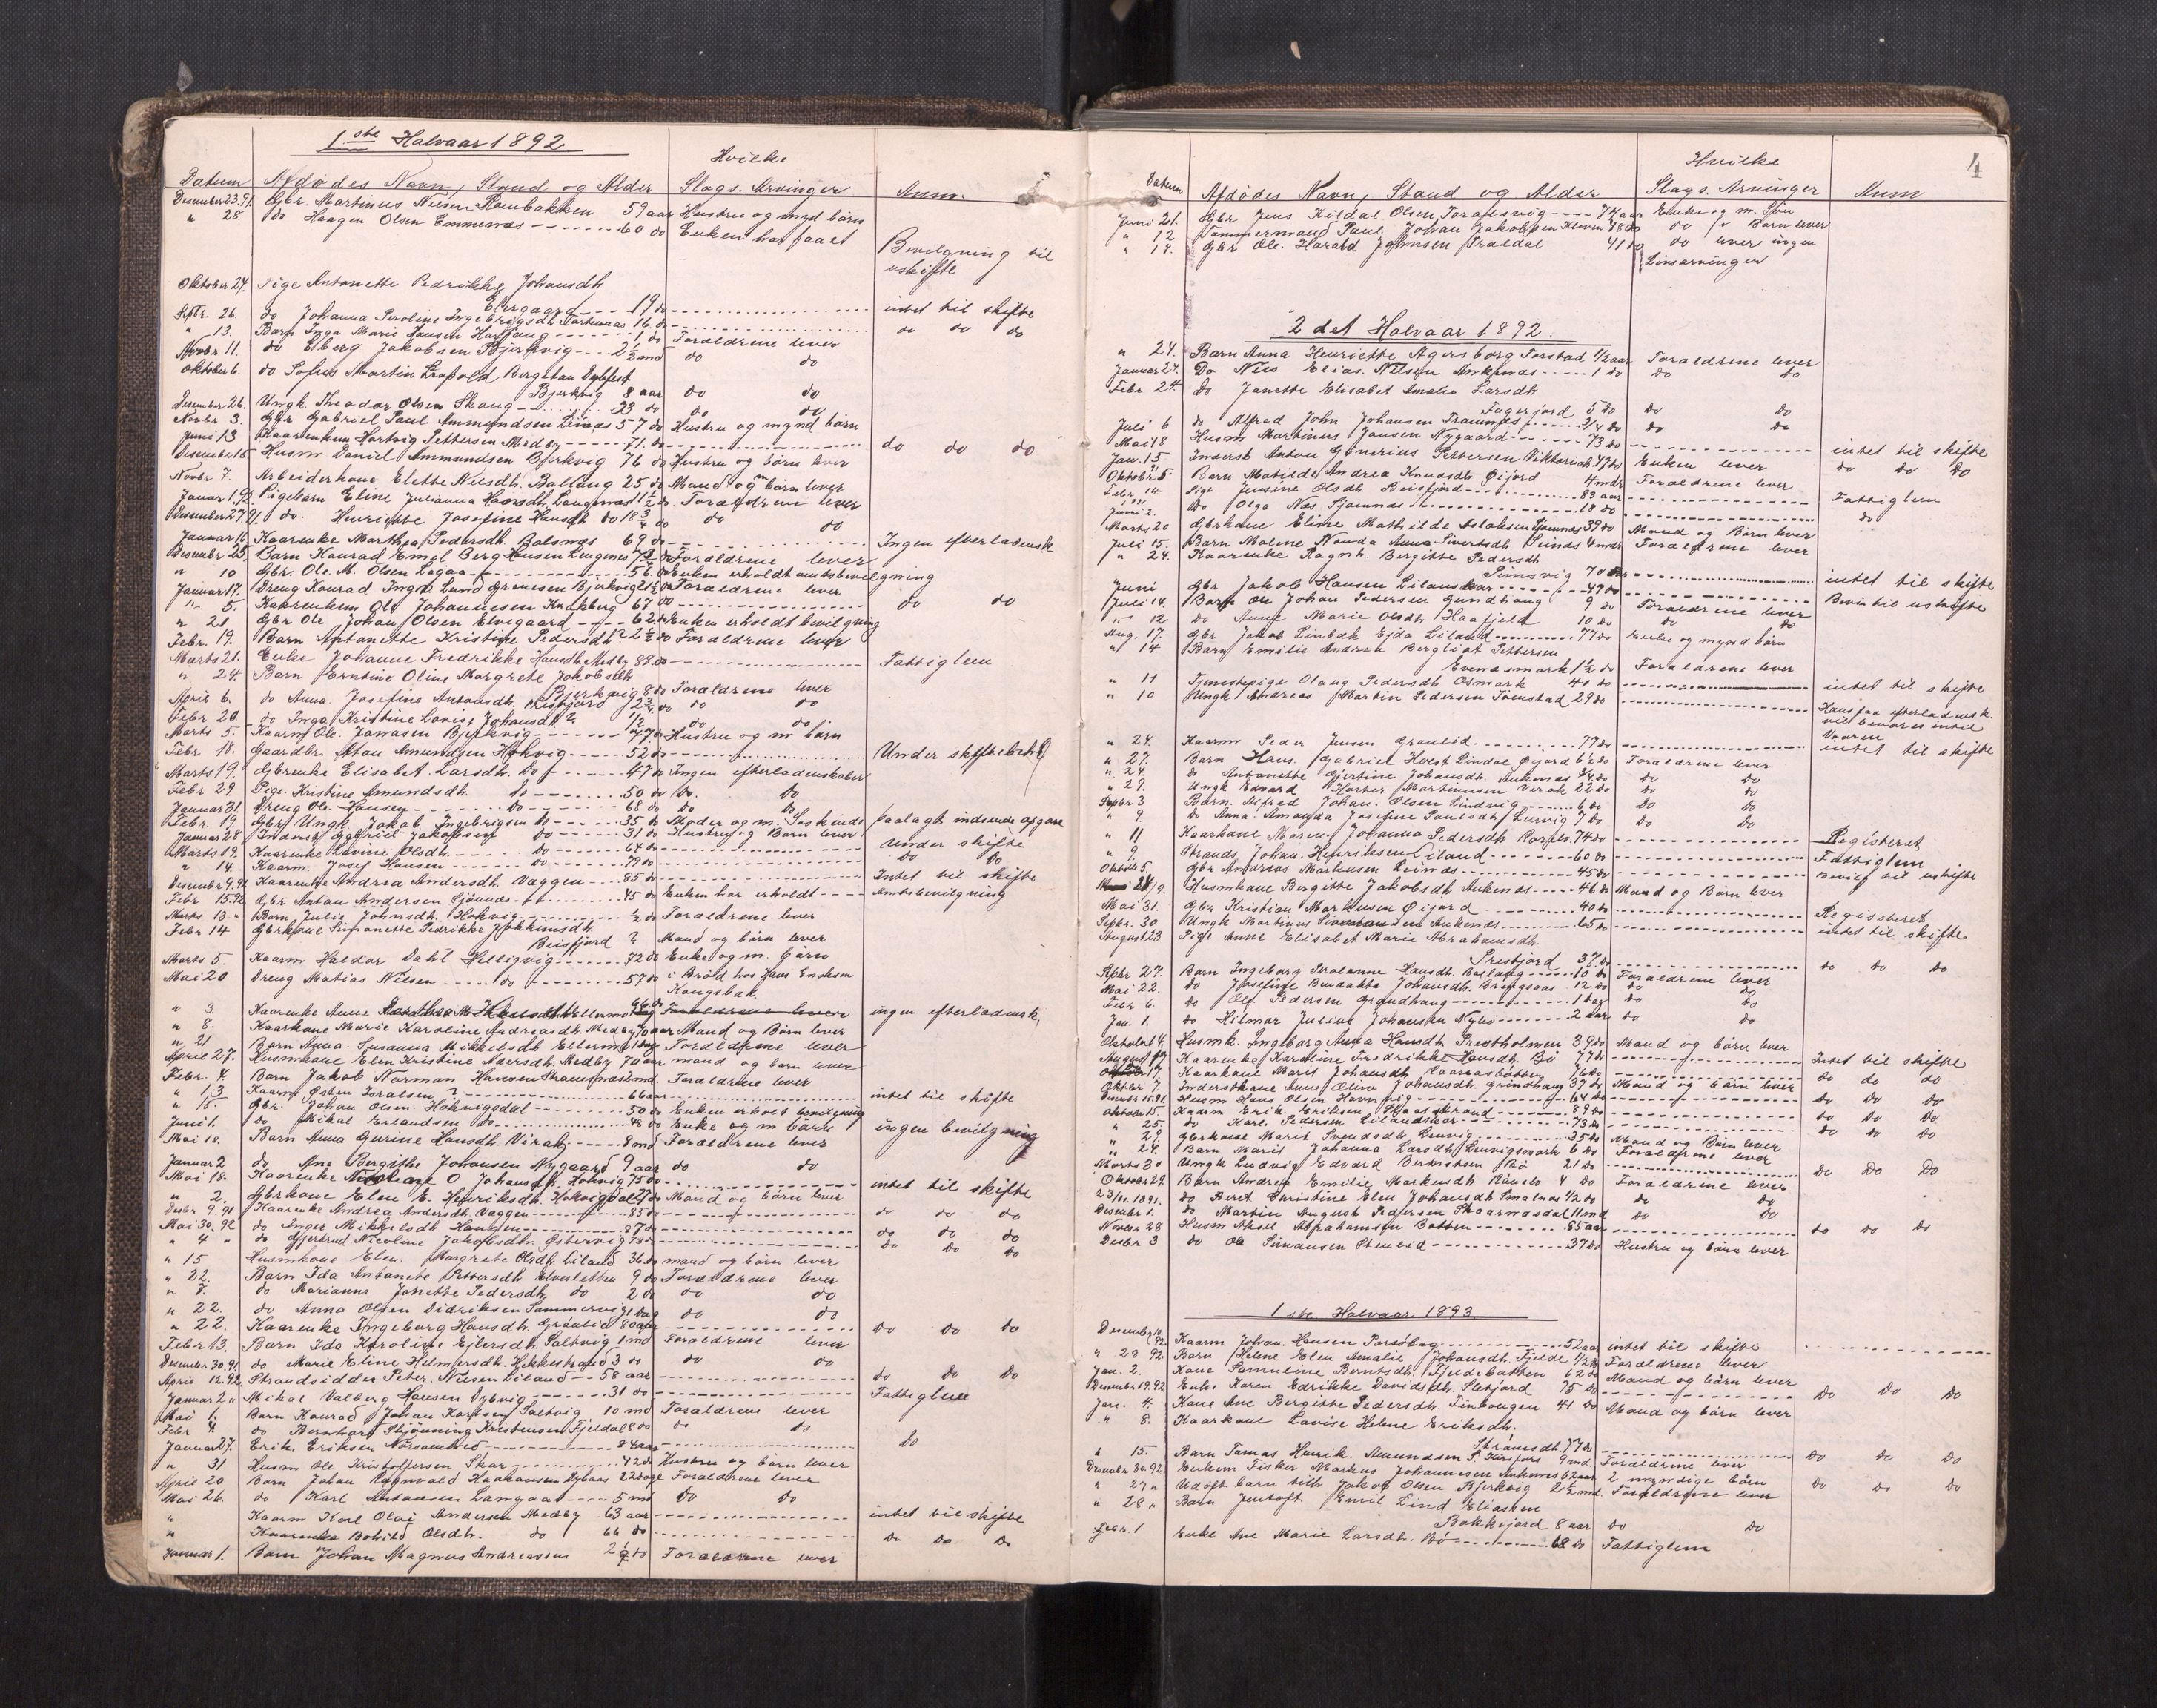 1ste Halvaar 1892.
Datum Afdødes Navn, Stand og Alder Hvilke Slags. Arvinger Anm.
Desember 23.91. Gbr. Martinus Nilsen 59 aar Hustru og mynd børn
" 28. do Haagen Olsen Emmenes 60 do Enken har faaet Bevilgning til
uskifte
Oktober 24. Pige Antonette Pedrikke Johansdh
Elvegaard 19 do intet til skifte
Septr. 26. do Johanna Peroline Ingebrigsdh 16 do do do do
" 13. Barn Inga Marie Hansen 1 do Foraldrene lever
Novbr 11. do Eberg Jakobsen Bjerkvig 2½ md do do
Oktober 6. do Sofus Martin Leopold Bergetan
Bjerkvig 8 aar do do
Desember 26. Ungk. Theodor Olsen Skaug 33 do do do
Novbr 3. Gbr Gabriel Paul Ammundsen Leines 57 do Hustru og mynd børn
Juni 13 Kaarenkem Hartvig Pettersen Medby 71. do do do do
Desember 15 Husm Daniel Ammundsen Bjerkvig 76 do Hustru og børn lever
Novbr 7. Arbeiderkone Elette Nilsdh. Ballang 25 do Mand og m børn lever
Januar 1.92 Pigebarn Eline Julianna Hansdh. Langenas 1½ do. Foraldrene lever
Desember 27.91. do. Henriette Josefine Hansdh do 18¾ do do do
Januar 16 Kaarenke Marthea Pedersdh Balsnes 69 do Ingen efterladensk
Desember 25. Barn Konrad Emil Berg Hansen Lengenes 7½ do Foraldrene lever
" 10 Gbr. Ole. M. Olsen Lagaa 56 do Enken erholdt amtsbevilgning
Januar 17. Dreng Konrad Ingv. Lund Hansen Bjerkvig 21½ do Foraldrene lever
" 5. Kaarenkem Ole Johannesen Kalkberg 67 do do do
" 21 Gbr Ole Johan Olsen Elvegaard 62 do Enken erholdt bevilgning
Febr. 19. Barn Antonette Kristine Pedersdh? 2½ do Foraldrene lever
Marts 21. Enke Johanne Fredrikke Hansdh Medby 88 do Fattiglem
" 24. Barn Erntine Oline Margrete Jakobsdh
Bjerkvig 8 do Foraldrene lever
April 6. do Anna Josefine Antonsdh. 2¾ do do do
Febr 20 do Inga Kristine Lovise Johansdh? ½ do do
Marts 5. Kaarm Ole. Jonasen Bjerkvig 47 do Hustru og m børn
Febr 18. Gaardbr. Amundsen Hokvig 52 do Under
Marts 19. Gbrenke Elisabet Larsdh. do 47 do Ingen efterladenskaber
Febr 29. Pige Kristine Amundsdh. do 50 do do. do
Januar 31. Dreng Ole. Hansen do 68 do do do
Febr. 19. Gbr/ Ungk Jakob Ingebrigsen do 35 do Moder og m. Søskende paalagt indsende opgave
Januar 28 Inderst Gabriel Jakobsen do 31 do Hustru og Børn lever
Marts 19. Kaarenke Lovine Olsdh. do 64 do under skifte
" 14. Kaarm. Josef Hansen do 79 do do do
Desember 9.91 Kaarenke Andrea Andersdh. Vaggen 85 do Intet til skifte
Febr 15.92. Gbr Antan Andersen Sjomnes 45 do Enken har erholdt Amtsbevilgning
Marts 13. " Barn Julie Johnsdh. Hokvig ½ do Foraldrene lever
Febr 14 Gbrkone Simonette Pedrikke Jokkumsdh.
Beisfjord ? Mand og børn lever
Marts 5. Kaarm Haldor Dahl Helligvig 72 do Enke og m. børn
Mai 20 Dreng Matias Nilsen do 57 do i Brød hos Hans Enoksen
Kongsbak.
" 3. Kaarenke Anne Foraldrene lever ingen efterladensk.
" 8. Kaarkone Marie Karoline Andreasdh. Medby aar Mand og Børn lever
" 21 Barn Anna Susanna Mikkelsdh Foraldrene lever
April 27. Husmkone Elen Kristine Adersdh. Medby 70 aar mand og børn lever
Febr. 4. Barn Jakob Norman Hansen md. Foraldrene lever
" 13 Kaarm Østen Israelsen ? 66 aar intet til skifte
" 15. Gbr. Johan Olsen. Hokvigsdal 50 do Enken erholt bevilgning
Juni 1. do Mikal Erlandsen do 48 do Enke og m børn ingen bevilgning
Mai 10. Barn Anna Gurine Hansdh. Virak 8 md Foraldrene lever
Januar 2 do Ane Bergithe Johansen Nygaard 9 aar do do
Mai 18. Kaarenke Nicoleane O Johansdh. Hokvig 75 do intet til skifte
" 2. Gbrkone Elen E. Henriksdh. Hokvigdal 27 do Mand og børn lever
Desbr 9.91 Kaarenke Andrea Andersdh. Vaggen 85 do do do do
Mai 30.92 do Inger Mikkelsdh Haugen 87 do do do do
" 4 " do Gjertrud Nicoline Jakobsdh. Østervig 78 do do do do
" 15 Husmkone Elen. Margrete Olsdh. Liland 36 do mand og børn lever
" 22. Barn Ida Antonete Pettersdh Elvesletten 9 do Foraldrene lever
" 7. do Marianne Janette Pedersdh do 2 do do do
" 22. do Anna Olsen Didriksen Sammervig 1 dag do do
" 22. Kaarenke Ingeborg Hansdh. Graulid 80 aar do do do
Febr 13. Barn Ida Karoline Ejlersdh. Saltvig 1 md Foraldrene lever
Desember 30.91. do Marie Eline Helmersdh. Hekkestrand 3 do do do
April 12.92. Strandsidder Peter. Nilsen Liland 58 aar do do do
Januar 2 " Mikal Valberg Hansen Dybvig 31 do Fattiglem
Mai 1. Barn Konrad Johan Karlsen Saltvig 10 md Foraldrene lever
Febr 4. do Bernhard Skjønning Kristensen Fjeldal 8 do do do
Januar 27. Erik. Eriksen 84 aar do
" 31 Husm Ole Kristoffersen Skar 42 do Hustru og børn lever
April 20 Barn Johan Vagnvald Haakonsen 22 dage Foraldrene lever
Mai 26. do Karl Antonsen Langaas 5 md do do
" Kaarm Karl Olai Andersen Medby 63 aar intet til skifte
" Kaarenke Bohild Olsdh. do 66 do do do do
Januar 1. Barn Johan Magnus Andreassen 2½ do Foraldrene lever
4
Datum Afdødes Navn, Stand og Alder Hvilke Slags. Arvinger Anm
Juni 21. Gbr Jens Kildal Olsen, 74 aar Enke og m. Søn
" 12 Tømmermand Paul Johan Jakobsen 48 do do Børn lever
" 14. Gbr Ole. Harald Johnsen Traldal 41 do do lever ingen
Livsarvinger
2det Halvaar 1892.
" 24. Barn Anna Henriette Agersborg Forstad ½ aar Foraldrene lever
Januar 24. Do Nils Elias. Nilsen Ankenes 1 do do do
Febr 24. do Janette Elisabet Amalie Larsdh
Fagerjord 5 do do do
Juli 6 do Alfred John Johansen 3/4 do do do
Mai 18 Husm Martinus Jansen Nygaard 73 do intet til skifte
Jan. 15 Inderst Anton Ginerius Pettersen 47 do Enken lever do do do
Oktobr 5 Barn Matilde Andrea Knudsdh Øijord 4 mdr Foraldrene lever
Febr. 14 Pige Jensine Olsdh Beisfjord 83 aar Fattiglem
Juni 2. do Olga Nøs Sjomnes 18 do do
Marts 20 Gbrkone Eline Mathilde Aslaksen Sjomnes 39 do Mand og Børn lever
Juli 15. Barn Malene Nanda Anna Sivertsdh Leines 4 mdr Foraldrene lever
" 24. Kaarenke Ragnh. Bergitte Pedersdh
70 aar intet til skifte
Juni Gbr Jakob Hansen Lilandskar 49 do Bevis til uskifte
Juli 14. Barn Ole Johan Pedersen Grindhaug 9 do Foraldrene lever
" 12 do Anne Marie Olsdh Haafjeld 10 do do do
Aug. 17. Gbr Jakob Linbæk Ejda Liland 77 do Enke og mynd børn
" 14 Barn Emilie Andrea Bergliot Pettersen
Evenesmark 1½ do Foraldrene lever
" 11 Tjenestepige Olaug Pedersdh Osmark 40 do intet til skifte
" 10 Ungk Andreas Martin Pedersen Tomstad 29 do Hans faa efterladensk.
vil bevares intil
Vaaren
" 24. Kaarm Peder Jensen Graulid 77 do intet til skifte
" 27. Barn Hans Gabriel Holst Lindal Øijord 6½ do Foraldrene lever
" 24. do Antonette Gjertine Johansdh. Ankenes ¾ do do do
" 29. Ungk Edvard Korber Martinusen Virak 22 do do do
Septbr 3 Barn. Alfred Johan. Olsen Lindvig 6 do do do
" 9 do Anna. Amanda Josefine Paulsdh Lervig 7 do do do
" 11 Kaarkone Maren Johanna Pedersdh 74 do Registeret
" 9 Strands. Johan. Henriksen Liland 60 do Fattiglem
Oktobr 5. Gbr Andreas Markusen Leines 45 do Bevilg til uskifte
24/9. Husmkone Bergitte Jakobsdh Ankenes 46 do Mand og Børn lever
Mai 31. Gbr Kristian Markusen Øijord 40 do Registeret
Septbr. 30 Ungk Martinus Ankenes 65 do intet til skifte
August 23 Pige Anne Elisabet Marie Abrahamsdh.
37 do do do do
Septbr 27. Barn Ingeborg Perolanne Hansdh. Ballang 10 do Foraldrene lever
Mai 22. do Josefine Bendakte Johansdh. 12 do do do
Febr 6. do Olf Pedersen Grindhaug 1 dag do do
Jan. 1. do Hilmar Julius Johansen Nybø 2 aar do do
Oktober 4. Husmk. Ingeborg Anna Hansdh. Prestholmen 39 do Mand og børn lever
August 17 Kaarenke Karoline Fredrikke Hansdh. Bø 77 do Intet til skifte
17. Kaarkone Marit Johansdh. 76 do do do do
Oktbr 7. Inderstkone Anne Oline Johansdh. Grindhaug 37 do Mand og børn lever
Desember 15.91. Husm Hans Olsen 64 do do do do
Oktober 15. Kaarm Erik Eriksen 89 do do do do
" 25. do Karl. Pedersen Lilandskar 73 do do do do
" 29. Gbrkone Marit Svendsdh Lenvig 35 do Mand og Børn lever
" 24. Barn Marit Johanna Larsdh Lenvigsmark 6 do Foraldrene lever
Marts 30 Ungk Ludvig Edvard Berntsen Bø 21 do do do do
Oktober 29. Barn Andrea Emilie Markusdh 4 do Foraldrene lever
23/10.1891. do Beret Christine Elen Johansdh ½ do do do
Desember 1. do Martin August Pedersen 11 md do do
Novbr 28 Husm Aksel Abrahamsen Botten 85 aar do do do
Desbr 3 do Ole Simansen Stenlid 37 do Hustru og børn lever
1ste Halvaar 1893.
Desember 10.92 Kaarm Johan. Hansen 52 aar intet til skifte
" 28 92. Barn Helene Elen Amalie Johansdh. Fjelde ½ do Foraldrene lever
Jan. 2. Kone Sameline Berntsdh. Fjeldebotten 62 do Mand og børn lever
Desember 19.92 Enke Karen Edrikke Davidsdh. 75 do do do do
Jan. 4. Kone Ane Bergitte Pedersdh. 41 do Mand og børn lever
" 8. Kaarkone Lovise Helene Eriksdh,
77 do do do do
" 15. Barn Tomas Henrik Amundsen 9 md. Foraldrene lever
Desember 30.92. Enkem Fisker Markus Johannesen Ankenes 62 aar 2 myndige børn do do do
" 27 " Udøbt barn tilh Jakob Olsen Bjerkvig 2½ md. Foraldrene lever
" 28 " Barn Jentoft Emil Lind Eliassen
Bokkejord 8 aar do do
Febr. 1 Enke Ane Marie Larsdh. Bø 68 do Fattiglem